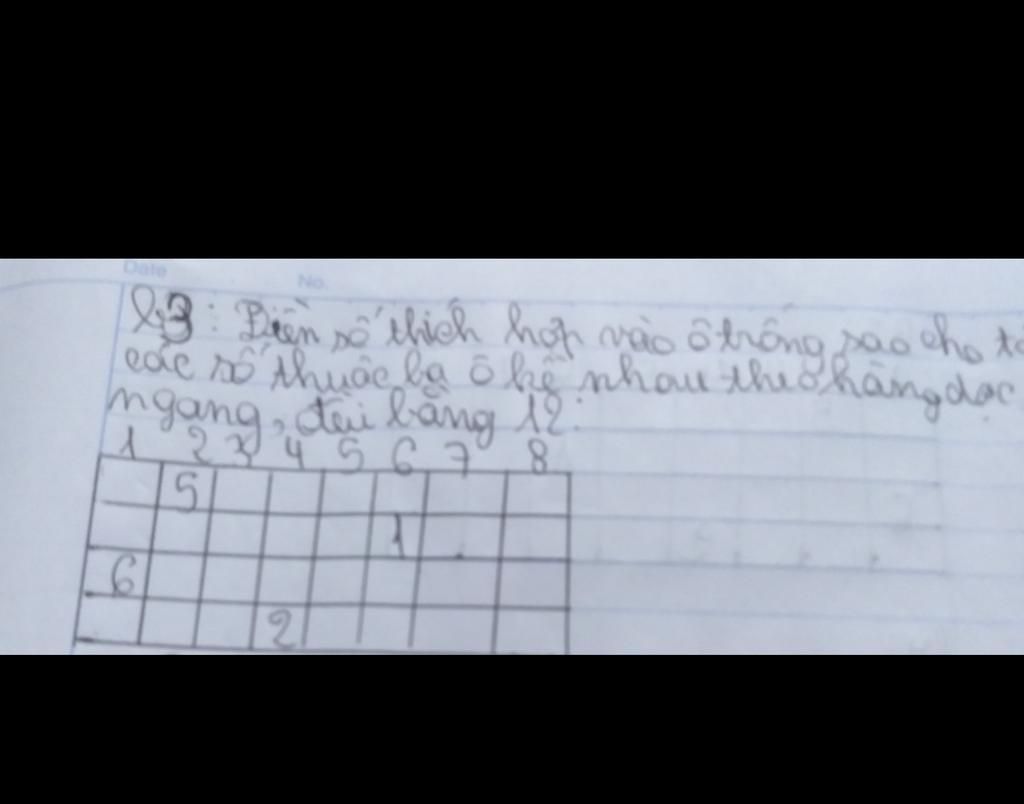 Date No.
B3: Điền số thích hợp vào ô trống sao cho
các số thuộc ba ô kề nhau theo hàng dọc
ngang, đều bằng 12.
1 2 3 4 5 6 7 8
5
1
6
2